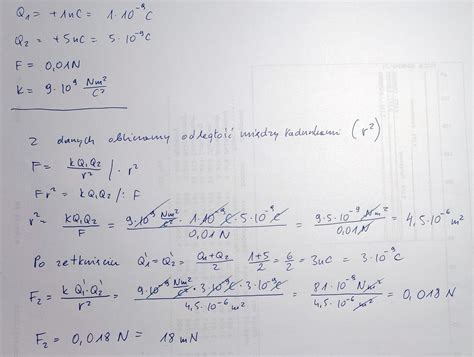 Q₁ = +1nC = 1·10⁻⁹C
Q₂ = +5nC = 5·10⁻⁹C
F = 0,01N
K = 9·10⁹ Nm²/C²
Z danych obliczamy odległość między ładunkami (r²)
F = kQ₁Q₂/r² /·r²
Fr² = kQ₁Q₂ /:F
r² = kQ₁Q₂/F = 9·10⁹ Nm²/C² · 1·10⁻⁹C · 5·10⁻⁹C / 0,01N = 9·5·10⁻⁹ Nm² / 0,01N = 4,5·10⁻⁶ m²
Po zetknięciu Q₁' = Q₂' = Q₁+Q₂/2 = 1+5/2 = 6/2 = 3nC = 3·10⁻⁹C
F₂ = k Q₁'·Q₂'/r² = 9·10⁹ Nm²/C² · 3·10⁻⁹C · 3·10⁻⁹C / 4,5·10⁻⁶ m² = 81·10⁻⁹ Nm² / 4,5·10⁻⁶ m² = 0,018N
F₂ = 0,018N = 18mN